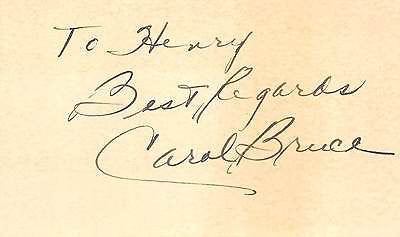 To Henry
Best, Regards
Carol Bruce